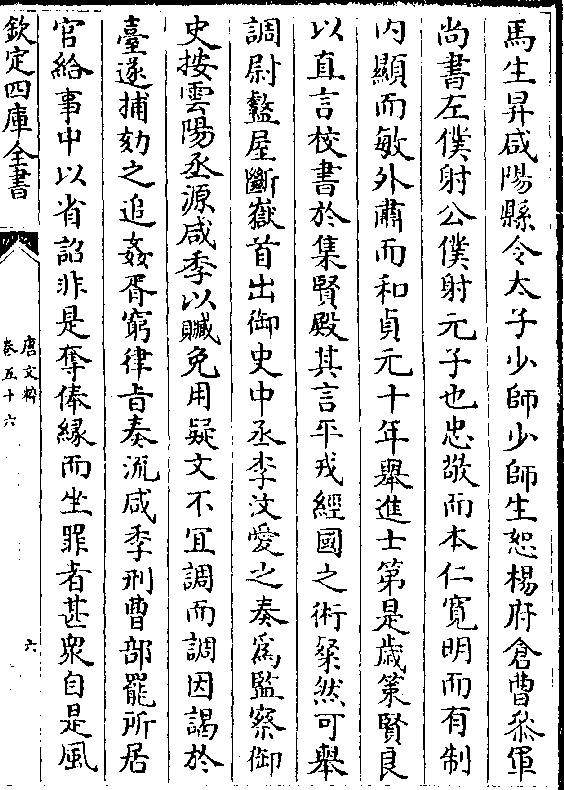 馬生昇咸陽縣令太子少師少師生恕楊府倉曹叅軍
尚書左僕射公僕射元子也忠敬而本仁寛明而有制
内顯而敏外肅而和貞元十年舉進士第是歲策賢良
以直言校書於集賢殿其言平戎經國之術粲然可舉
調尉盩厔斷嶽首出御史中丞李汶愛之奏爲監察御
史按雲陽丞源咸季以贓免用疑文不冝調而調因謁於
臺遂捕劾之追姦胥窮律旨奏流咸季刑曹部罷所居
官給事中以省詔非是奪俸縁而坐罪者甚衆自是風
欽定四庫全書
唐文粹
卷五十六
六